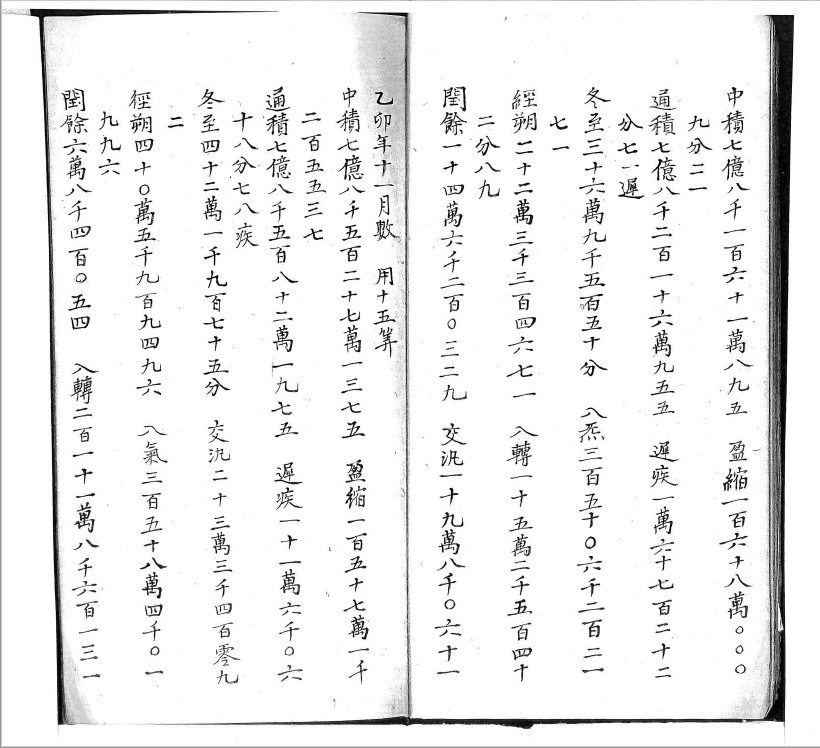 中積七億八千一百六十一萬八九五　盈縮一百六十八萬○○○
九分二一
通積七億八千二百一十六萬九五五　遲疾一萬六十七百二十二
分七一遲
冬至三十六萬九千五百五十分　入炁三百五十○六千二百二一
七一
經朔二十二萬三千三百四六七一　入轉一十五萬二千五百四十
二分八九
閏餘一十四萬六千二百○三二九　交汎一十九萬八千○六十一
乙卯年十一月數　用十五筭
中積七億八千五百二十七萬一三七五　盈縮一百五十七萬一千
二百五五三七
通積七億八千五百八十二萬一九七五　遲疾一十一萬六千○六
十八分七八疾
冬至四十二萬一千九百七十五分　交汎二十三萬三千四百零九
二
經朔四十○萬五千九百九四九六　入氣三百五十八萬四千○一
九九六
閏餘六萬八千四百○五四　入轉二百一十一萬八千六百一三一